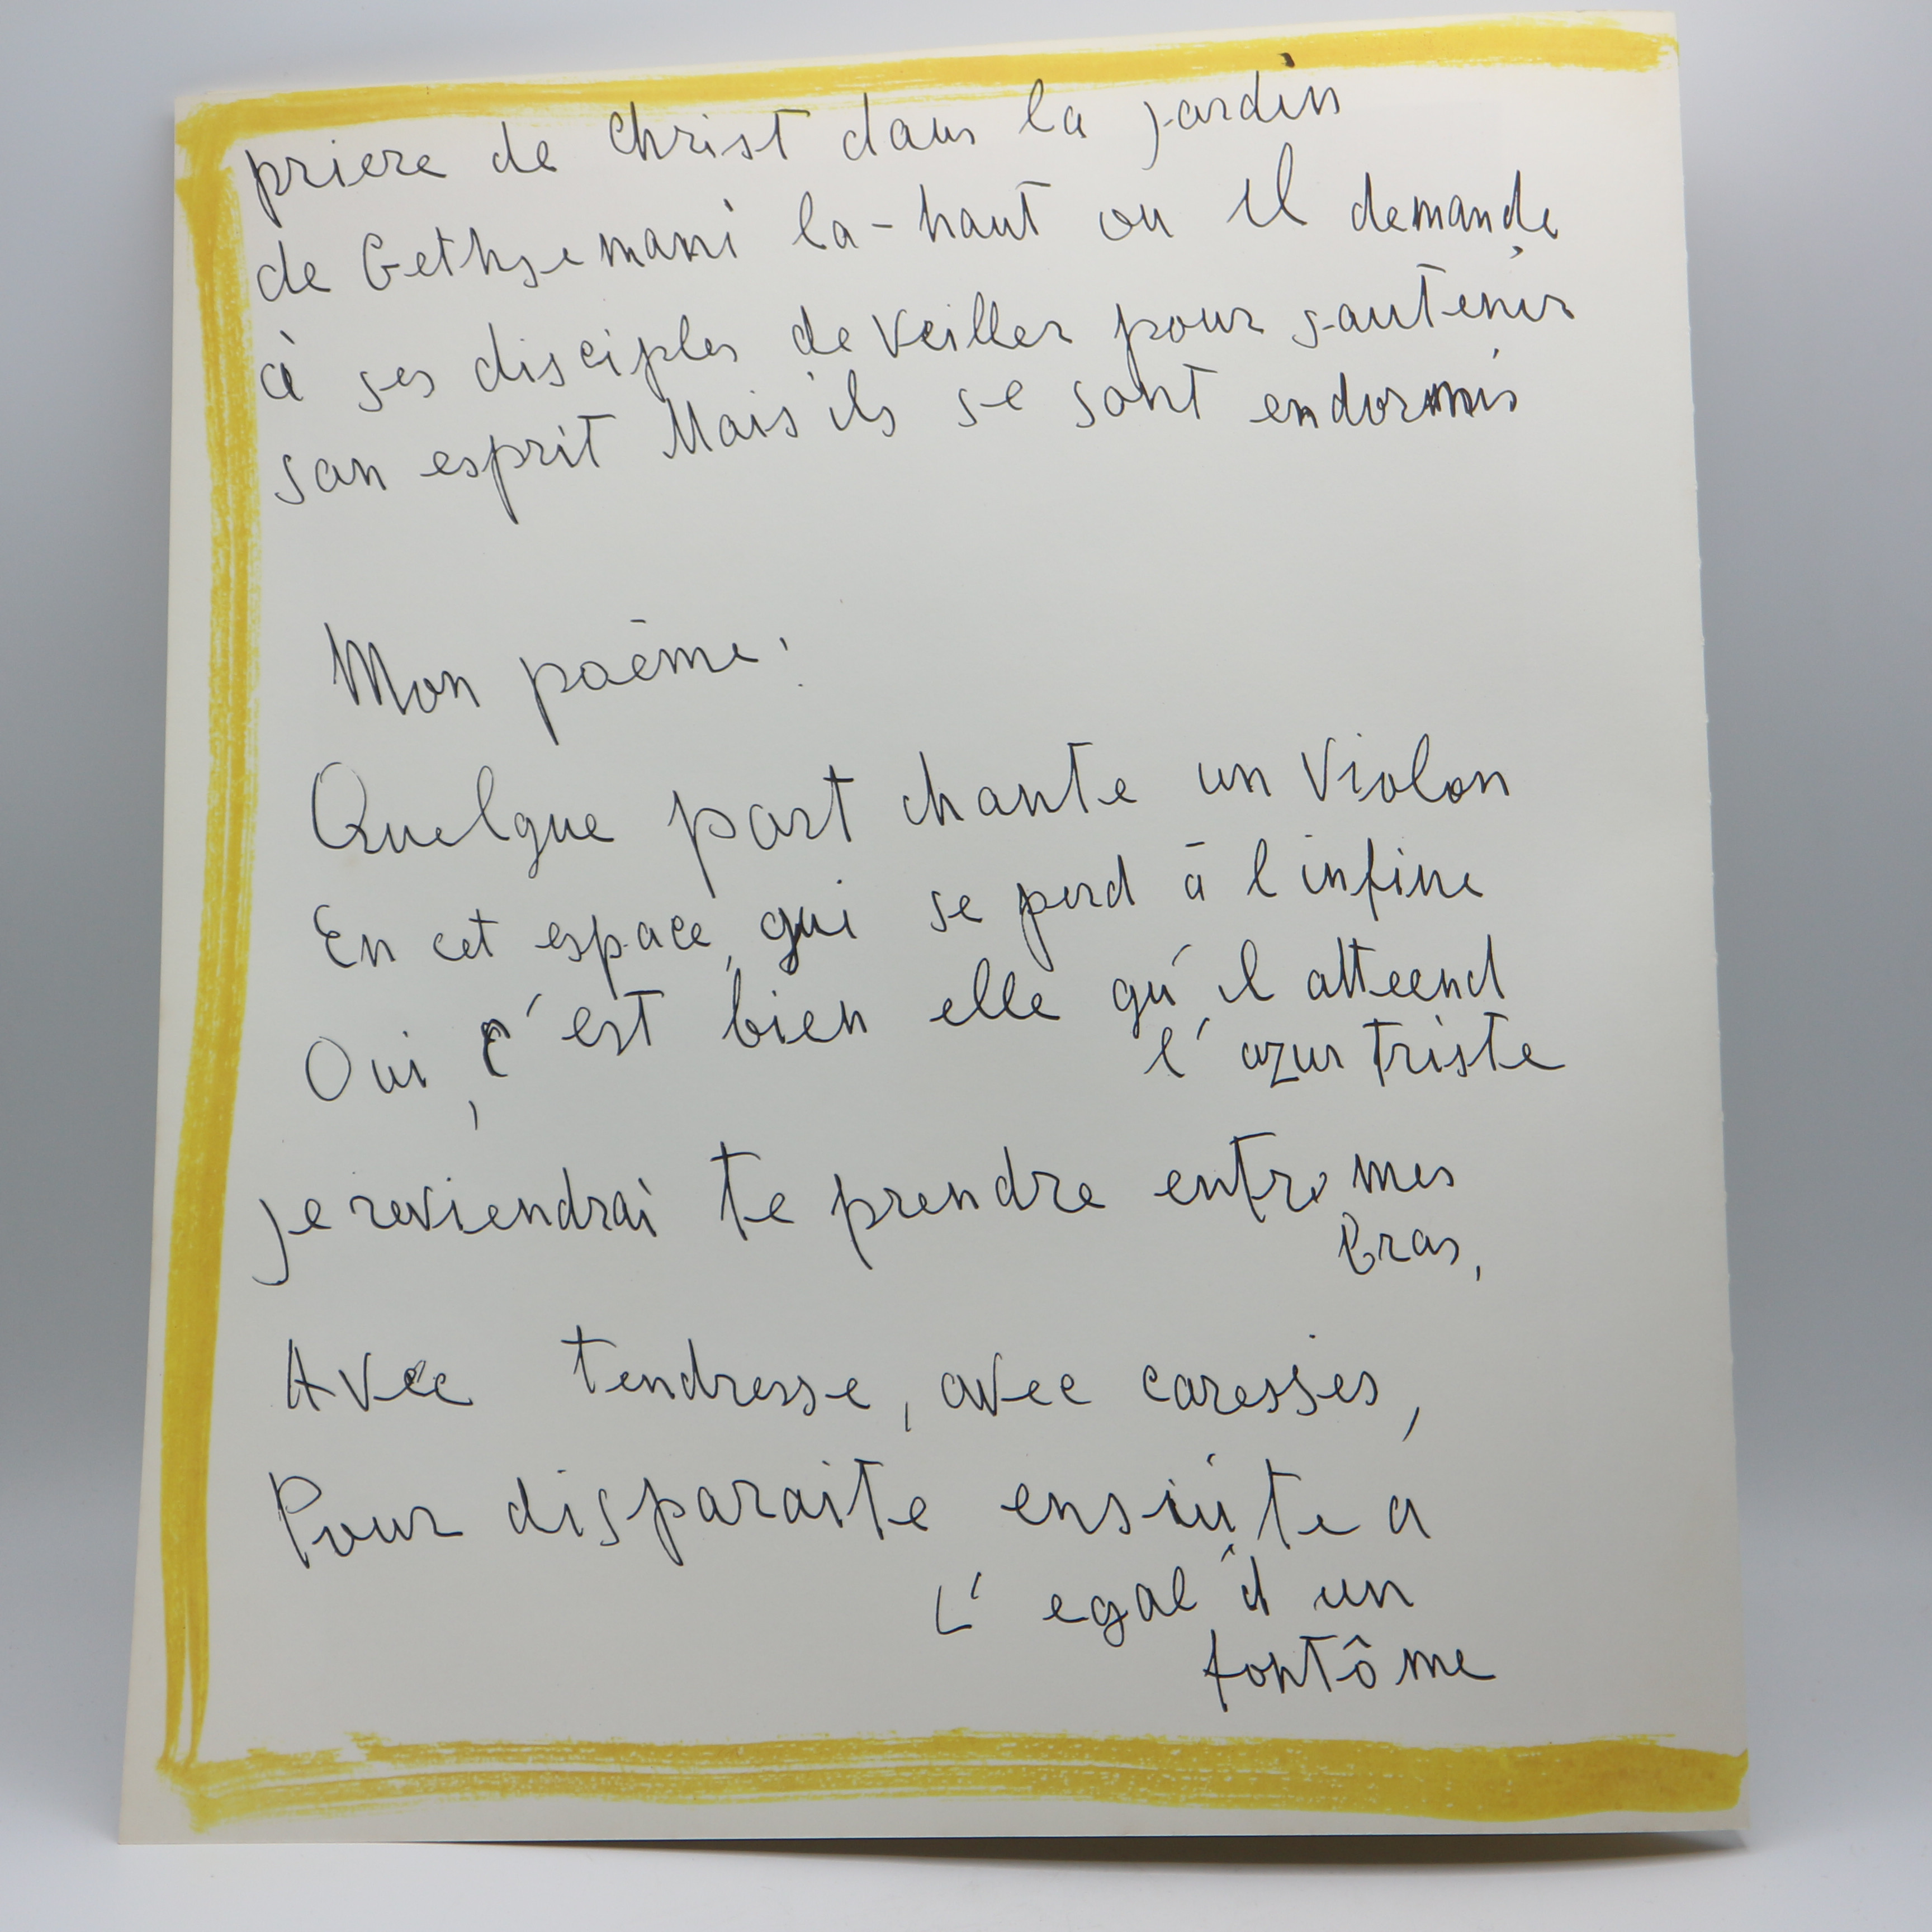 priere de Christ dans la jardin
de Gethsemani la-haut ou il demande
à ses disciples de veiller pour soutenir
son esprit Mais ils se sont endormis
Mon poème:
Quelque part chante un violon
En cet espace, qui se perd à l'infine
Oui, c'est bien elle qu'il atteend
l'azur triste
je reviendrai te prendre entre mes
bras,
Avec tendresse, avec caresses,
Pour disparaite ensuite a
L'egal d'un
fontôme